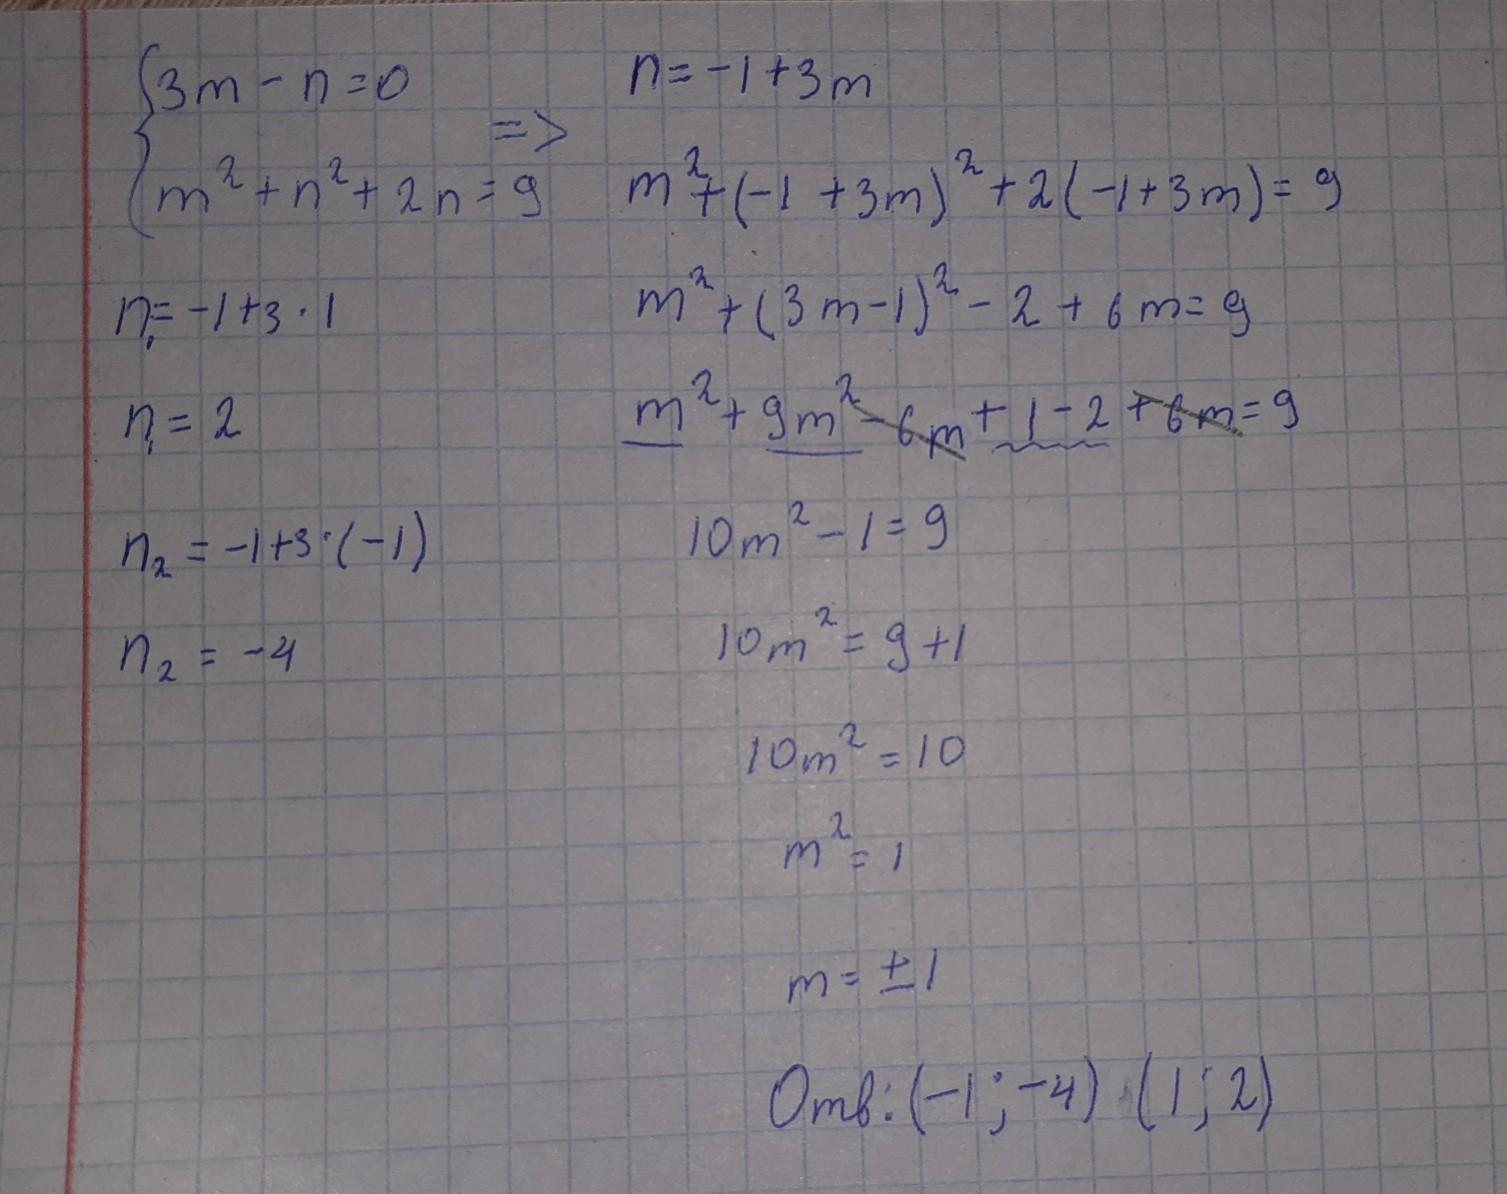 {3m - n = 0
m² + n² + 2n = 9
=>
n = -1 + 3m
m² + (-1 + 3m)² + 2(-1 + 3m) = 9
m² + (3m - 1)² - 2 + 6m = 9
m² + 9m² - 6m + 1 - 2 + 6m = 9
10m² - 1 = 9
10m² = 9 + 1
10m² = 10
m² = 1
m = ± 1
n₁ = -1 + 3 · 1
n₁ = 2
n₂ = -1 + 3 · (-1)
n₂ = -4
Отв: (-1; -4) (1; 2)